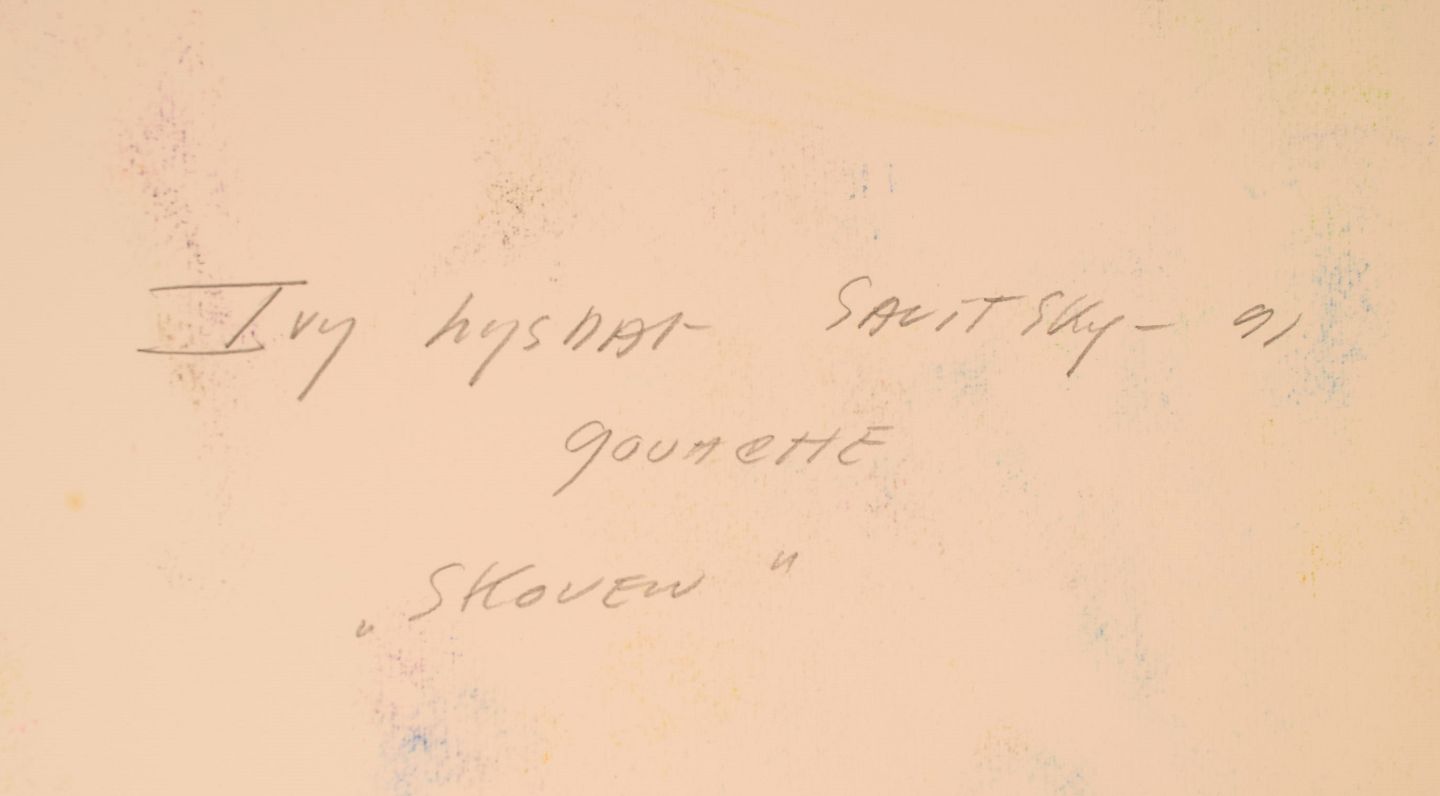 Ivy Lysdal Savitsky - 91
gouacHE
„SKoven"